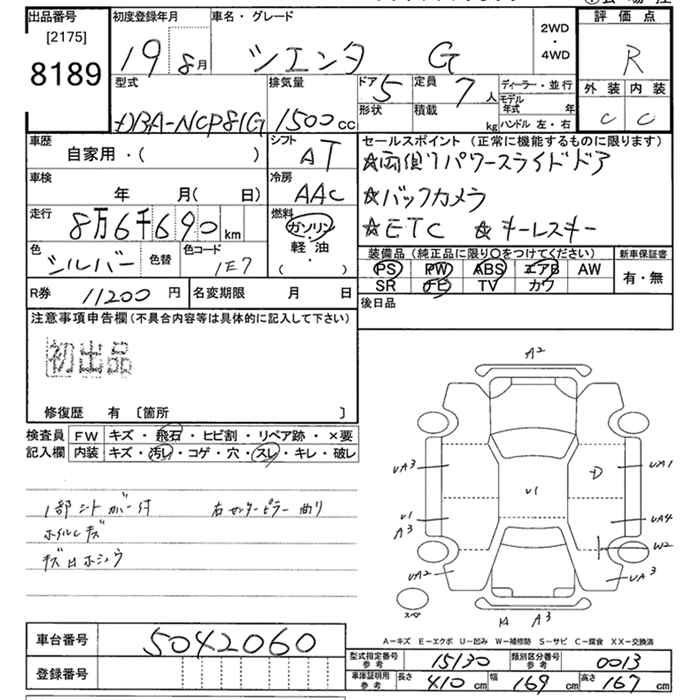 出品番号 初度登録年月 車名・グレード 評価点
[2175] 19 8月 シエンタ G 2WD・4WD R
8189 型式 排気量 ドア 5 定員 7人 ディーラー・並行 外装 内装
DBA-NCP81G 1500cc 形状 積載 kg モデル年式 年 ハンドル 左・右 C C
車歴 シフト セールスポイント (正常に機能するものに限ります)
自家用・( ) AT ☆両側パワースライドドア
車検 冷房 ☆バックカメラ
年 月( 日) AAC ☆ETC ☆キーレスキー
走行 8万6千690km 燃料 ガソリン・軽油・( )
色 シルバー 色替 色コード 1E7 装備品 (純正品に限り○をつけてください) 新車保証書
PS PW ABS エアB AW 有・無
SR ナビ TV カワ
R券 11200円 名変期限 月 日 後日品
注意事項申告欄 (不具合内容等は具体的に記入して下さい)
初出品
修復歴 有 〔箇所 〕
検査員 FW キズ・飛石・ヒビ割・リペア跡・×要
記入欄 内装 キズ・汚レ・コゲ・穴・スレ・キレ・破レ
1部シートカバー付 右センターピラー曲り
ホイルキズ
キズ凹ホシュウ
A2
UA3 D UA1
U1
U1 A3 UA4
W2
UA2 UA3
スペア A3
A-キズ E-エクボ U-凹み W-補修跡 S-サビ C-腐食 XX-交換済
車台番号 5042060
型式指定番号 参考 15130 類別区分番号 参考 0013
登録番号 車庫証明用 参考 長さ 410cm 幅 169cm 高さ 167cm